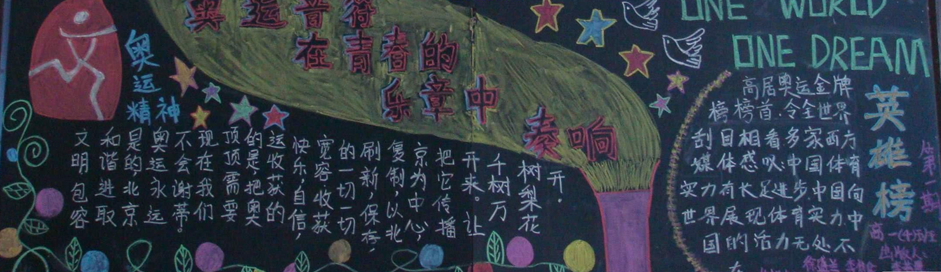 奥运音符
在青春的
乐章中
奏响
奥运
精神
ONE WORLD
ONE DREAM
文明包容
和谐进取
是的北京
奥运永远
不会谢幕
现在我们
顶顶需要
的是把奥
运收获的
快乐自信,
宽容收获
的一切一切
刷新,保存,
复制以北
京为中心,
把它传播
开来。让
千树万
树梨花
开.
高居奥运金牌
榜榜首.令全世界
刮目相看多家西方
媒体 中国体育
实力有长足进步.中国向
世界展现体育实力中
国的活力无处不
在
英雄榜
第一期
高一
出版人